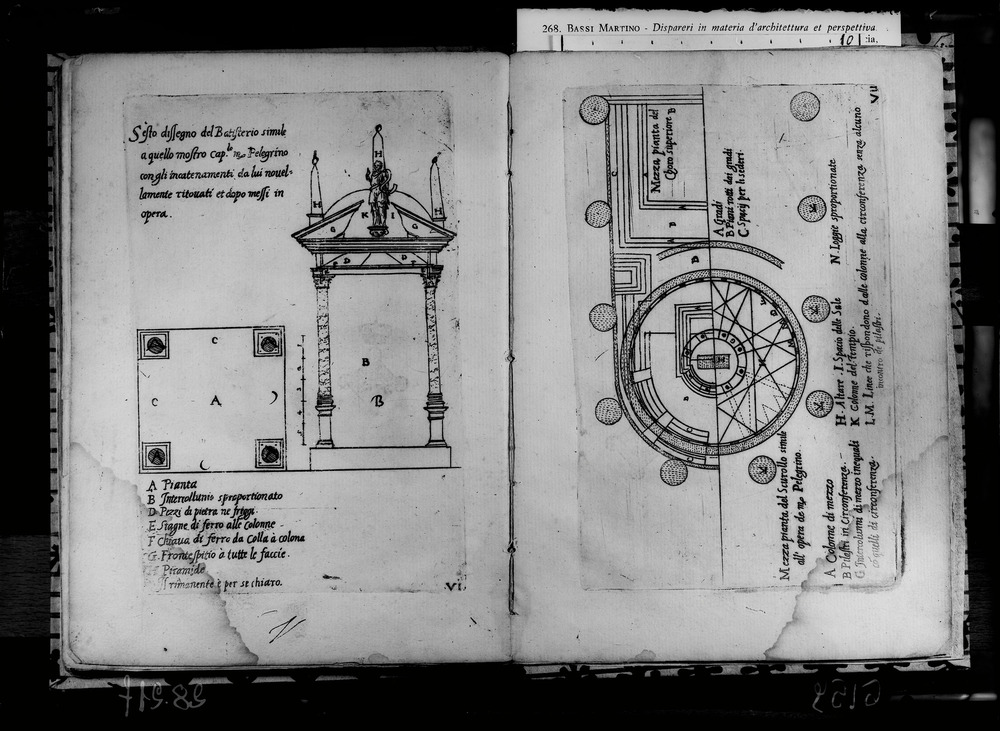 268. BASSI MARTINO - Dispareri in materia d'architettura et perspettiva
10
:ia.
Sesto dissegno del Batisterio simile
a quello mostro cap.le mo Pelegrino
congli incatenamenti da lui novel=
lamente ritovati et dopo messi in
opera.
H
H
H
G
K
I
G
D
D
B
B
C
C
A
A
A Pianta
B Intercolluni sproportionato
D Pezzi di pietra ne friggi
E Stagne di ferro alle colonne
F Chiava di ferro da Colla à colona
G Frontespitio à tutte le faccie.
Piramide
Il rimanente è per se chiaro.
VI.
VII
Mezza pianta del
Choro superiore B
A Gradi
B Piani rotti dei gradi
C Spacij per li sederi.
Mezza pianta del Scurollo simile
all' opera de mo Pelegrino.
H Altare . I Spacio delle Sale
N Loggie sproportionate
K Colonne del Tempio.
L.M. Linee che rispondono dalle colonne alla circonferenza senza alcuno
incontro de pilastri.
A Colonne di mezzo
B Pilastri in circonferenza.
G Intercolunni di mezzo inequali
a quelli di circonferenza.
28.217
5159